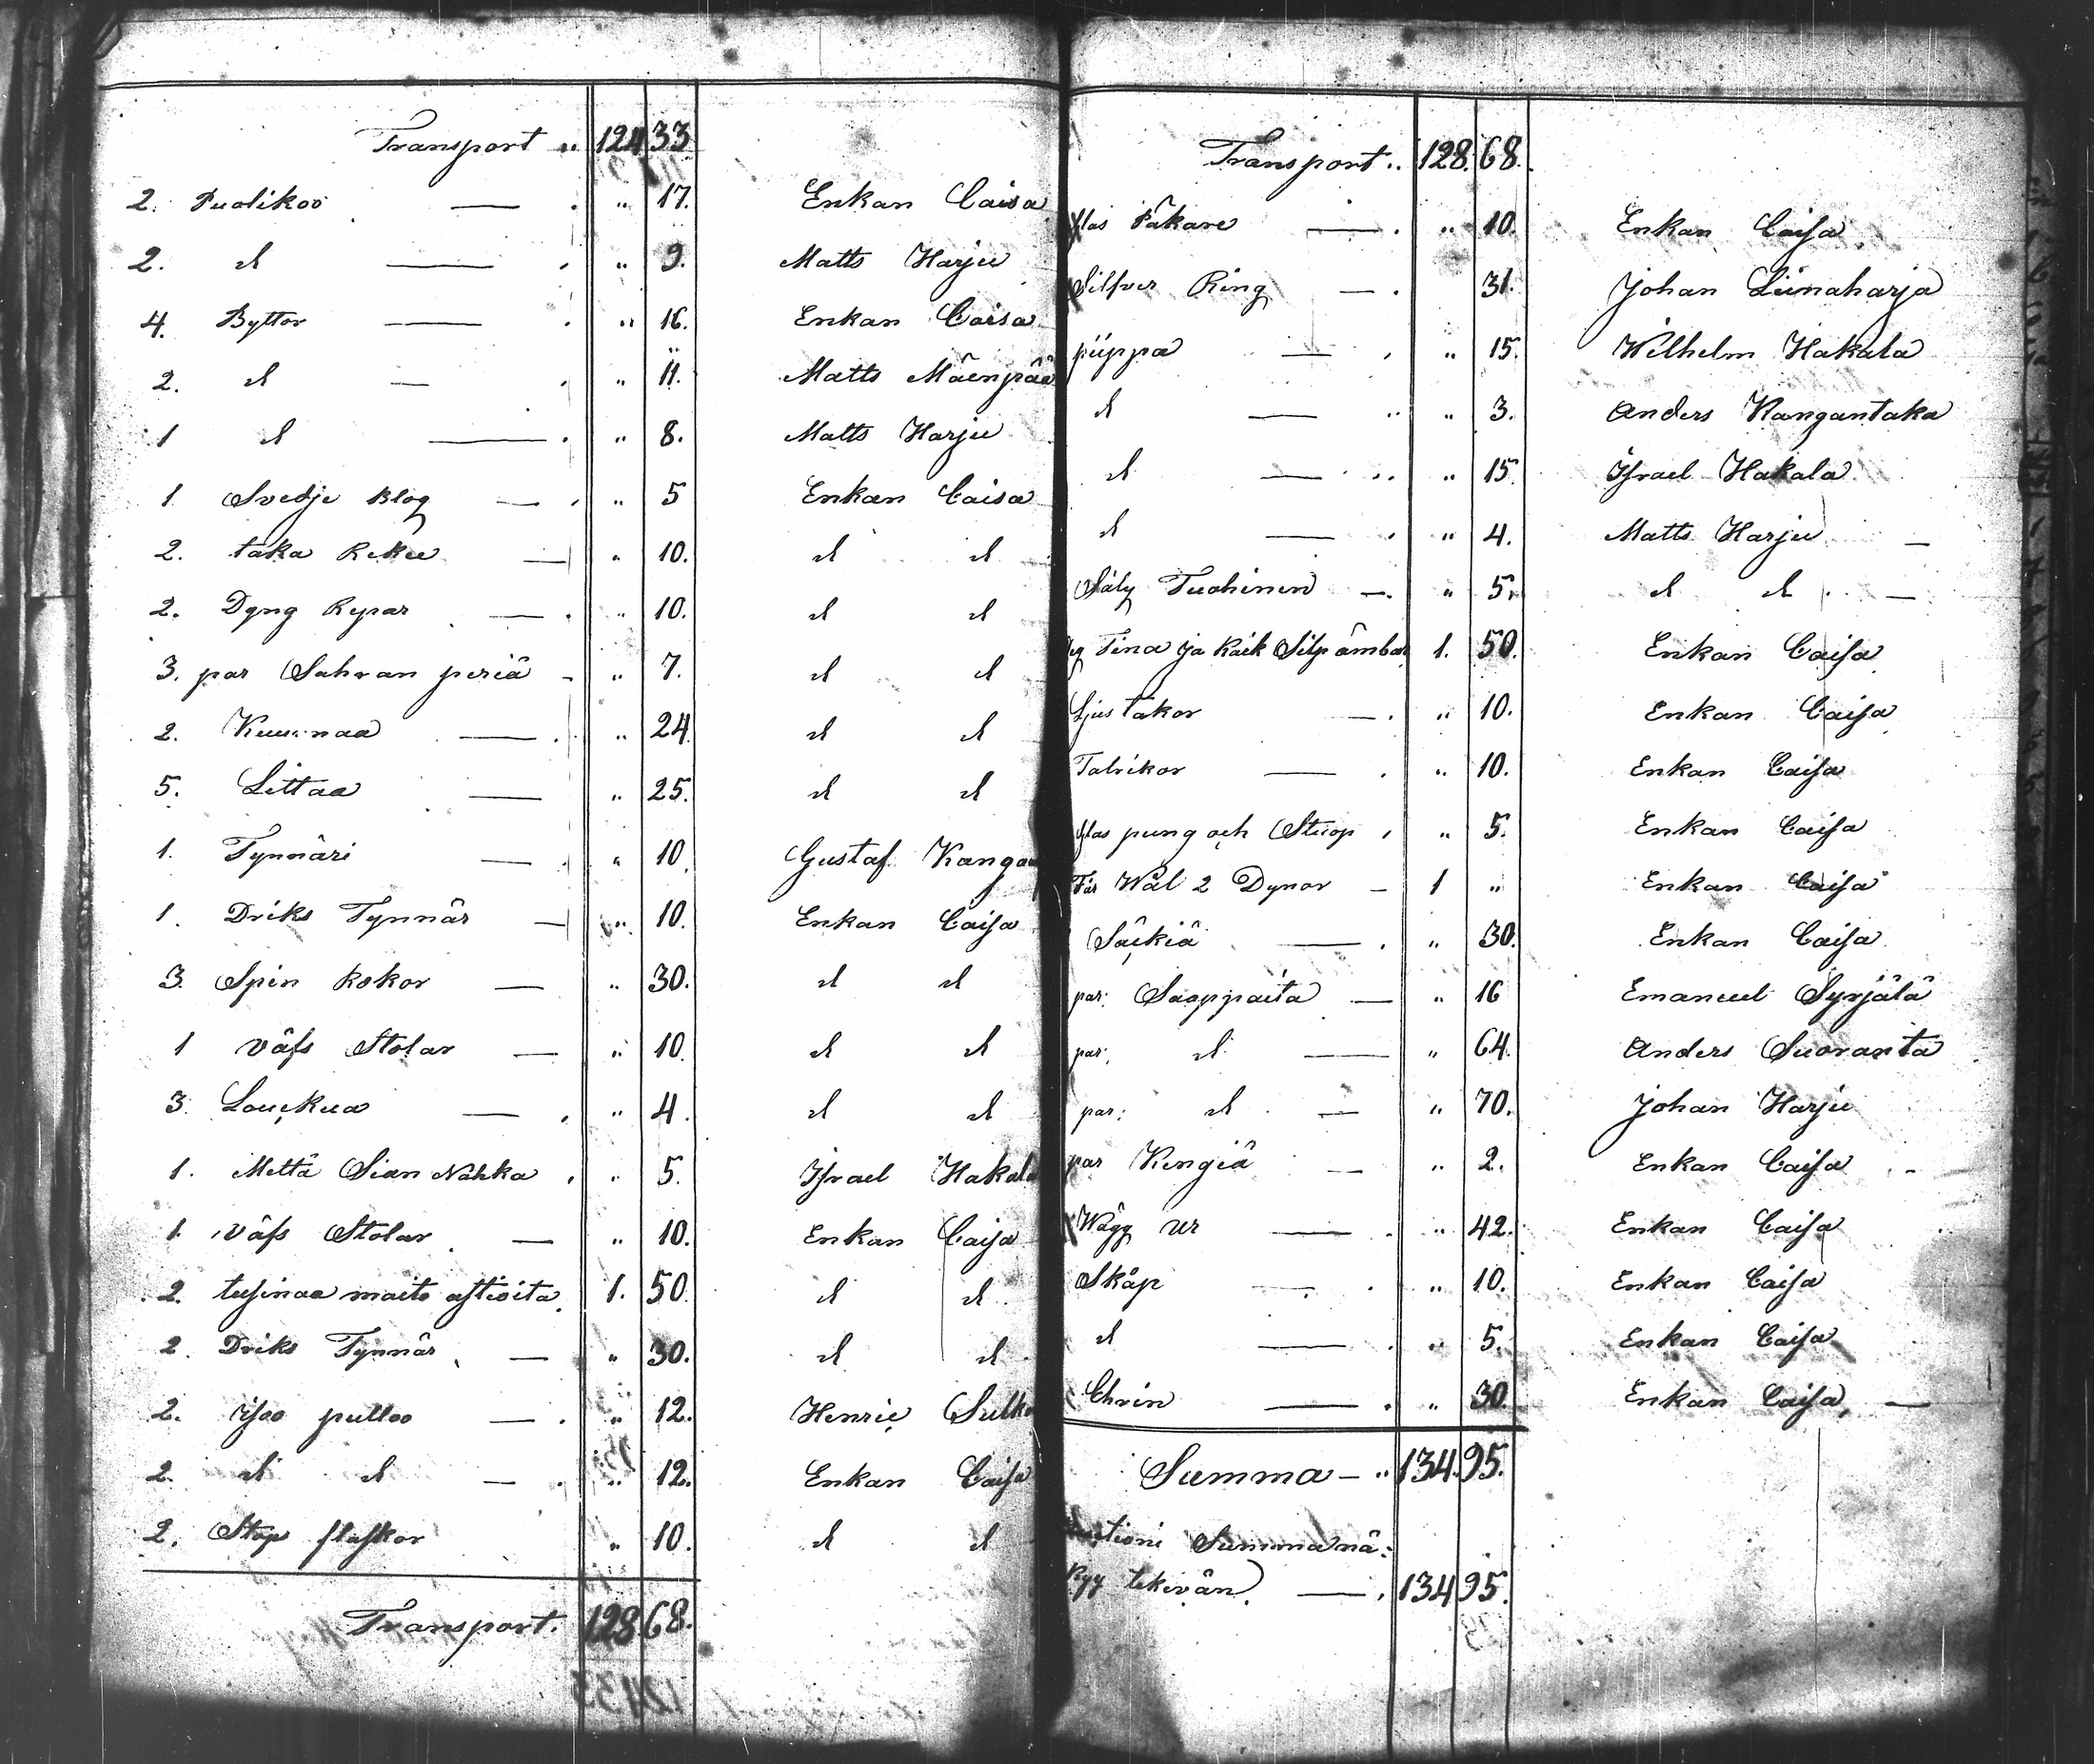 Transport „ 124 33
2. Puolikoo — . „ 17. Enkan Caisa
2. d — . „ 9. Matts Harju
4. Byttor — . „ 16. Enkan Caisa
2. d — . „ 11. Matts Mäenpää
1 d — . „ 8. Matts Harju
1 Svedje Blog — . „ 5 Enkan Caisa
2. taka Reku — „ 10. d d
2. Dyng Repar — . „ 10. d d
3. par Sahvan periä - „ 7. d d
2. — . „ 24 d d
5. Littaa — „ 25. d d
1. Tynnäri — . „ 10 Gustaf
1. Driks Tynnär — „ 10. Enkan Caisa
3. Spin Rokor — „ 30. d d
1 Väfs Stolar — „ 10. d d
3 Louckua — . „ 4. d d
1. Mettä Sian Nahka . „ 5. Israel Hakala
1. Väfs Stolar — „ 10. Enkan Caisa
2. tusinaa maito astioita 1. 50. d d
2. Driks Tynnär — „ 30. d d
2. isoo pulloo — . „ 12. Henric
2. d d — . „ 12. Enkan Caisa
2. Stop flaskor „ 10. d d
Transport. 128 68.
Transport „ 128. 68.
Fäkare — . „ 10. Enkan Caisa
Silfver Ring — . 31. Johan Liimaharja
piippa — . „ 15. Wilhelm Hakala
d — „ „ 3. Anders Kangantaka
d — „ 15. Israel Hakala
d — . „ 4. Matts Harju —
Säly Tuohinen — . „ 5. d d —
Tina ja Kaik Silpämbar 1. 50. Enkan Caisa
Ljustakor — . „ 10. Enkan Caisa
Talrikor — . „ 10. Enkan Caisa
pung och Stoop . „ 5. Enkan Caisa
Får Wål 2 Dynor - 1 „ Enkan Caisa
Säckiä — . „ 30. Enkan Caisa
par: Saappaita — „ 16 Emanuel Syrjälä
par: d — „ 64. Anders Suoranta
par: d — „ 70. Johan Harju
par Kengiä — „ 2. Enkan Caisa
Wägg Ur — . „ 42. Enkan Caisa
Skåp — . „ 10. Enkan Caisa
d — . „ 5. Enkan Caisa
Chrin — . „ 30. Enkan Caisa, —
Summa — „ 134. 95.
Summa nä:
kyy tekevän — . 134 95.